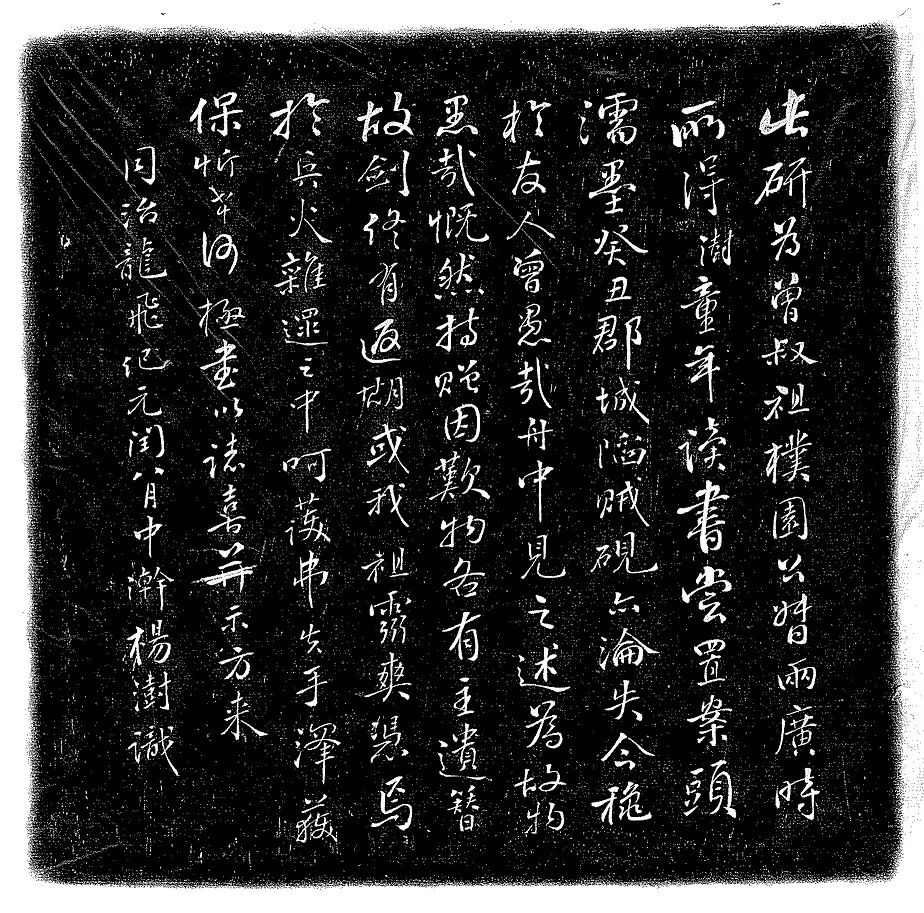 此研为曾叔祖樸園公督兩廣時
所得澍童年讀書嘗置案頭
濡墨癸丑郡城陷賊硯亦淪失今穐
於友人曾愚哉舟中見之述為故物
愚哉慨然持贈因歎物各有主遺簪
故剑終有返期或我祖靈爽憑焉
於兵火雜遝之中呵護弗失手澤薙
保忻幸何極書以誌喜并示方来
同治龍飛纪元闰八月中澣楊澍識